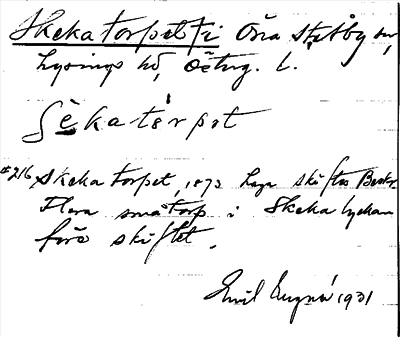 Skekatorpet fi Östra Stenby sn,
Lysings hd, Östug. l.
Sèkatɛrpɛt
#216 Skekatorpet, 1873 Laga skiftes Beskr.
Flera småtorp i Skekalyckan
före skiftet.
Emil 1931